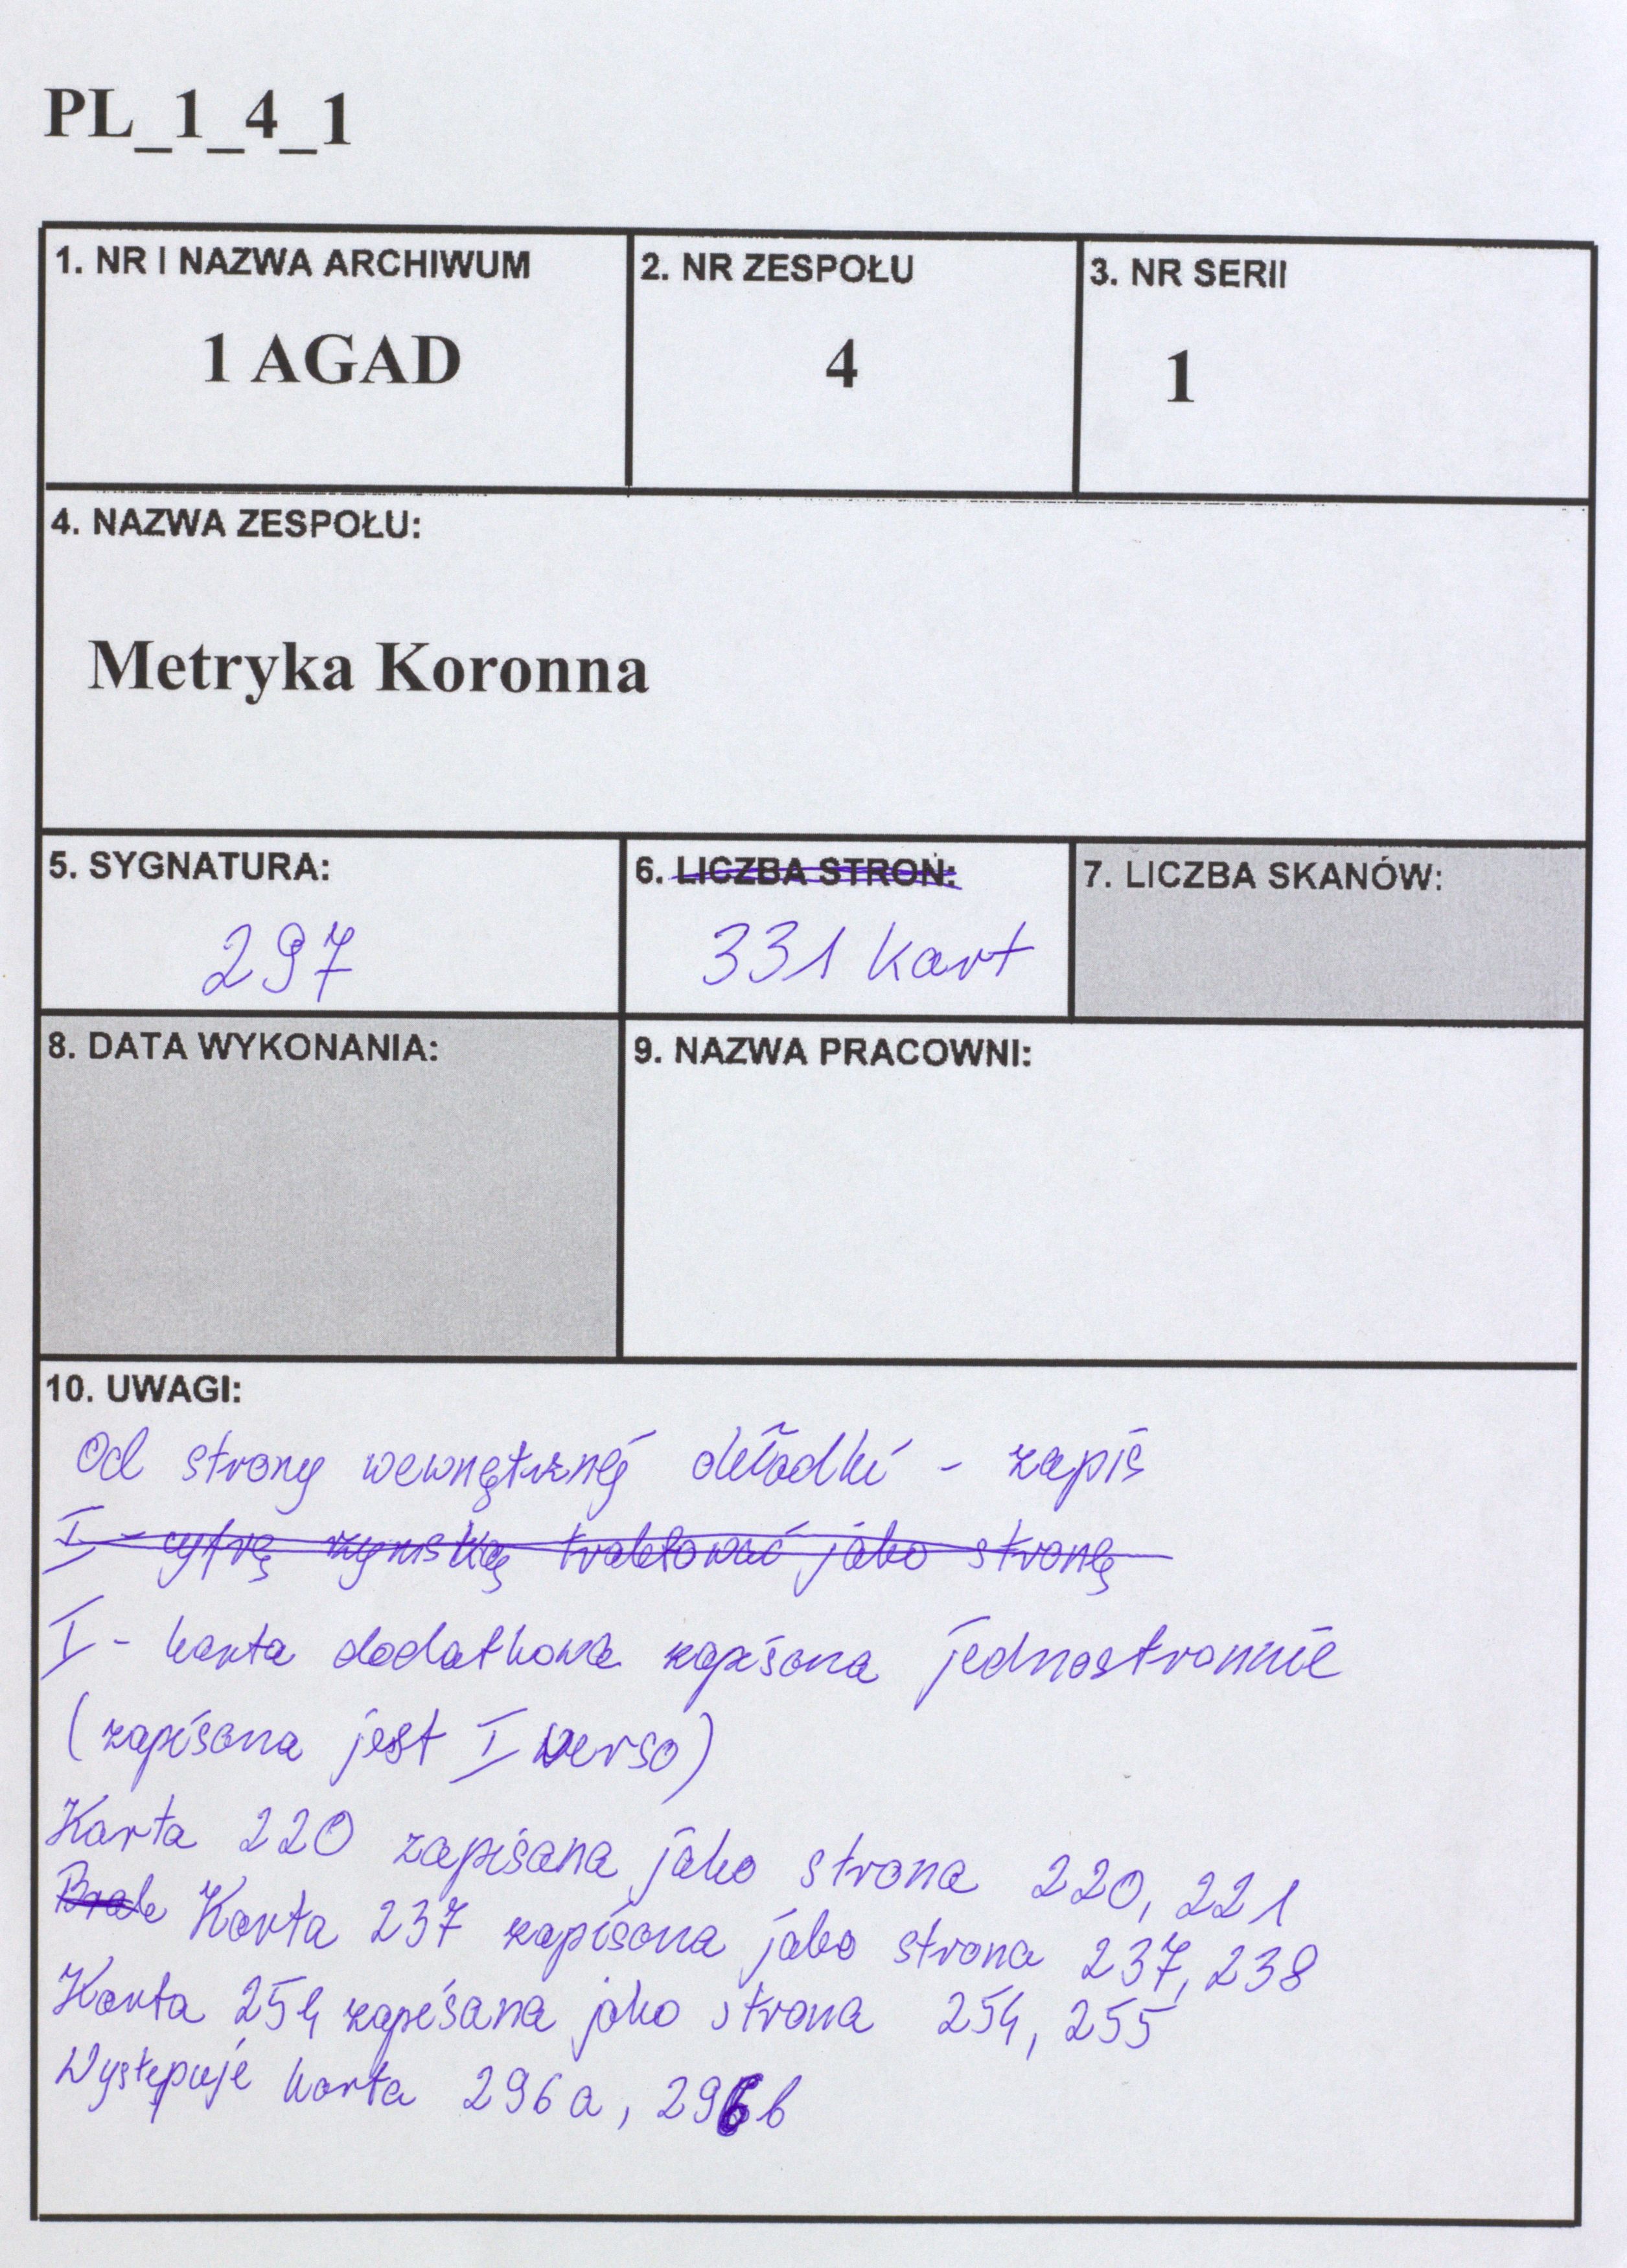 PL_1_4_1
1. NR I NAZWA ARCHIWUM
1 AGAD
2. NR ZESPOŁU
4
3. NR SERII
1
4. NAZWA ZESPOŁU:
Metryka Koronna
5. SYGNATURA:
297
6. LICZBA STRON:
331 kart
7. LICZBA SKANÓW:
8. DATA WYKONANIA:
9. NAZWA PRACOWNI:
10. UWAGI:
Od strony wewnętrznej okładki - zapis
I - cyfrę rzymską traktować jako stronę
I - karta dodatkowa zapisana jednostronnie
(zapisana jest I verso)
Karta 220 zapisana jako strona 220, 221
Brak Karta 237 zapisana jako strona 237, 238
Karta 254 zapisana jako strona 254, 255
Występuje karta 296a, 296b